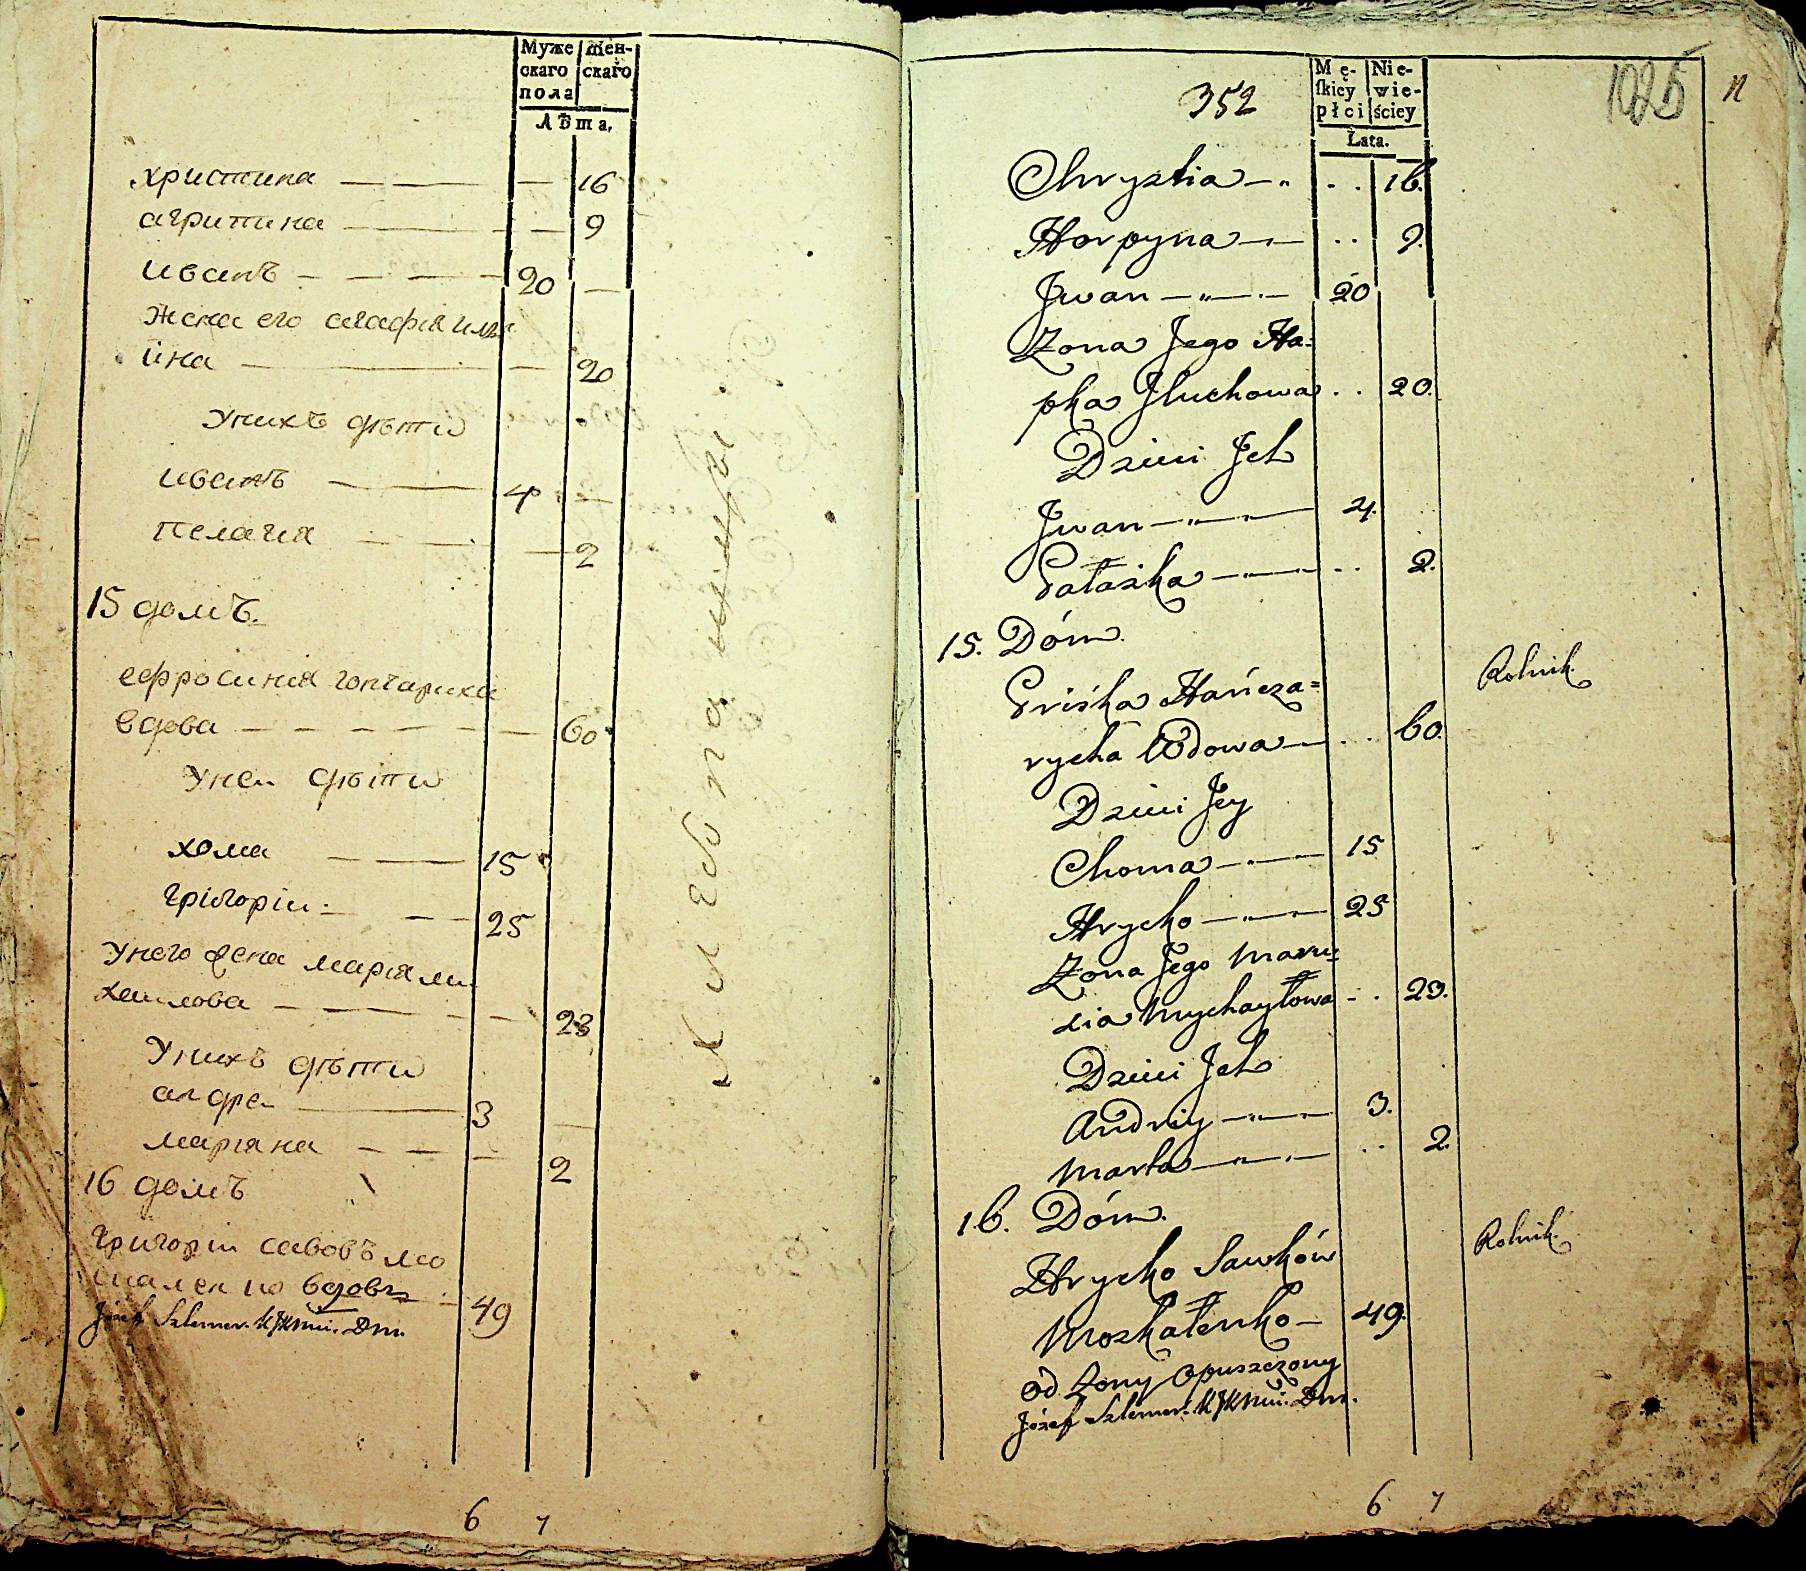 Муже женскаго скаго пола
Лѣта,
христина — — — 16
агрипина — — — 9
иванъ — — — 20 —
Жена его агафія иль
ина — — 20
Унихъ дѣти
иванъ — — 4 —
пелагия — — — 2
15 домъ.
ефросинія гончариха
вдова — — — — — 60
Унеи дѣти
хома — — 15
григорій — — 25
Унего жена марія ми
хаилова — — — — 23
Унихъ дѣти
андреи — 3
маріяна — — — 2
16 домъ
григоріи савовъ мо
49
Józef Szlemer.
6 7
хлебопашцы
352
1025
Mę-skiey płci Nie-wie-ściey
Lata.
Chrystia — .. 16.
Horpyna — .. 9.
Jwan — 20
Zona Jego Ha=
pka Jluchowa .. 20.
Dzieci Jch
Jwan — 4.
Pałażka — .. 2.
15. Dóm.
Priśka Hańcza=
Rolnik.
rycha Wdowa — .. 60.
Dzieci Jey
Choma — 15
Hrycko — 25
Zona Jego Maru=
sia Mychayłowa .. 23.
Dzieci Jch
Andriy — 3.
Marta — .. 2.
16. Dóm.
Hrycko Sawków
Rolnik.
Moskałenko — 49.
od Zony Opuszczony
Józef Szlemer.
6 7